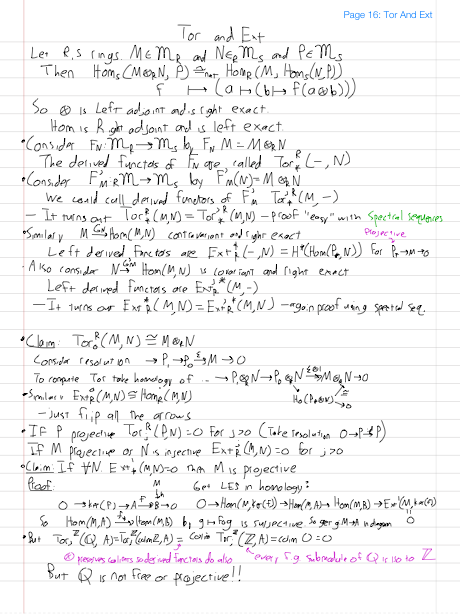 Page 16: Tor And Ext
Tor and Ext
Let R,S rings, M∈M_R and N∈_R M_S and P∈M_S
Then Hom_S(M⊗_R N, P) ≅_nat Hom_R(M, Hom_S(N,P))
f ↦ (a↦(b↦f(a⊗b)))
So ⊗ is Left adjoint and is right exact.
Hom is Right adjoint and is left exact.
• Consider F_N: M_R → M_S by F_N M = M⊗_R N
The derived functors of F_N are called Tor_*^R(-,N)
• Consider F'_M: _R M → M_S by F'_M(N) = M⊗_R N
We could call derived functors of F'_M Tor'_*^R(M,-)
– It turns out Tor_*^R(M,N) = Tor'_*^R(M,N) – proof "easy" with Spectral sequences
• Similarly M ↦ Hom(M,N) contravariant and right exact
projective
Left derived functors are Ext_R^*(-,N) = H^*(Hom(P_•,N)) for P_•→M→0
• Also consider N ↦ Hom(M,N) is covariant and right exact
Left derived functors are Ext_R'^*(M,-)
– It turns out Ext_R^*(M,N) = Ext_R'^*(M,N) – again proof using spectral seq.
• Claim: Tor_0^R(M,N) ≅ M⊗_R N
Consider resolution → P_1 → P_0 →^ε M → 0
To compute Tor take homology of ... → P_1⊗N → P_0⊗_R N →^{ε⊗1} M⊗_R N → 0
H_0(P_•⊗N) → 0
≅
• Similarly Ext_R^0(M,N) ≅ Hom_R(M,N)
– Just flip all the arrows
• If P projective Tor_j^R(P,N)=0 for j>0 (Take resolution 0→P→P)
If M projective or N is injective Ext_R^j(M,N)=0 for j>0
• Claim: If ∀N Ext^1(M,N)=0 then M is projective
Proof: M Get LES in homology:
0→ker(f)→A→^f B→0 0→Hom(M,ker(f))→Hom(M,A)→Hom(M,B)→Ext^1(M,ker(f))
0
So Hom(M,A)→Hom(M,B) by g↦f∘g is surjective so get g M→A in diagram
• But Tor_1^Z(Q,A)=Tor_1^Z(colim Z,A) = colim Tor_1^Z(Z,A)=colim 0=0
⊗ preserves colimits so derived functors do also
every f.g. submodule of Q is iso to Z
But Q is not free or projective!!